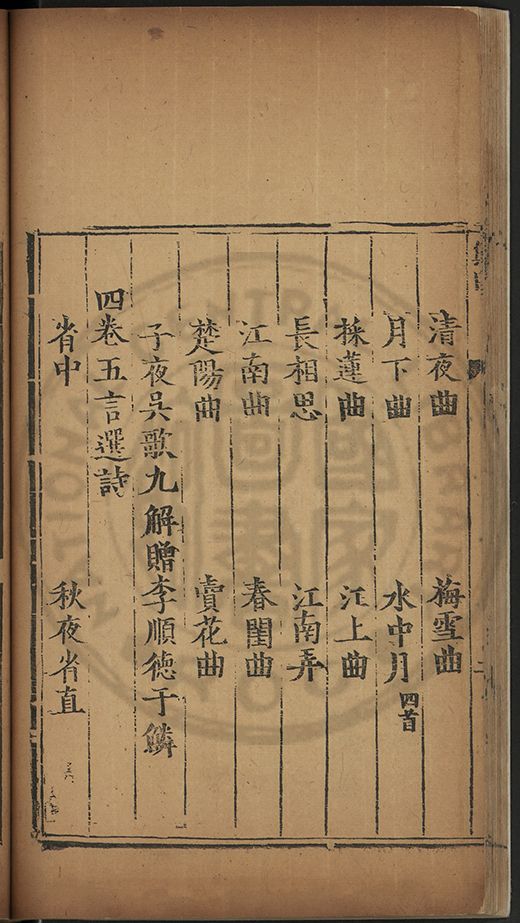 清夜曲 梅雪曲
月下曲 水中月四首
採蓮曲 江上曲
長相思 江南弄
江南曲 春閨曲
楚陽曲 賣花曲
子夜吳歌九解贈李順德于鱗
四卷五言選詩
省中 秋夜省直